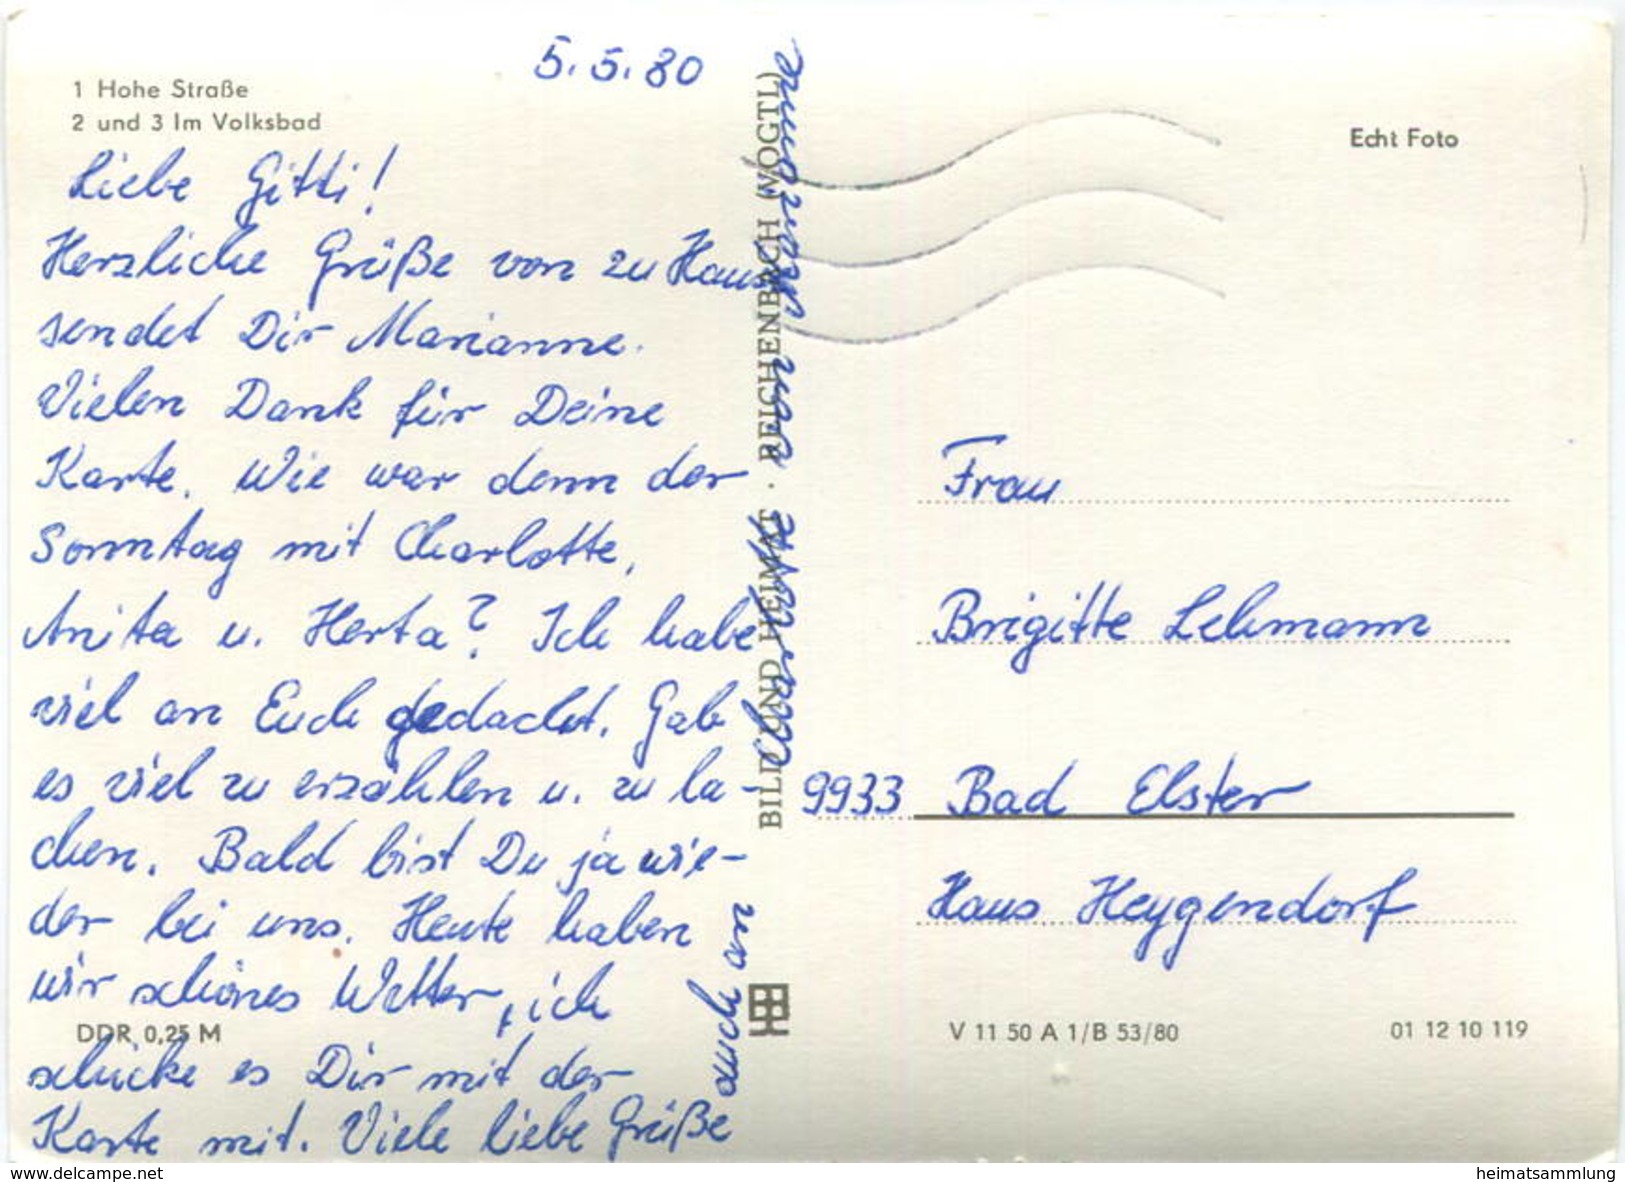 5.5.80
1 Hohe Straße
2 und 3 Im Volksbad
Liebe Gitti!
Herzliche Grüße von zu Haus
sendet Dir Marianne.
Vielen Dank für Deine
Karte. Wie war denn der
Sonntag mit Charlotte,
Anita u. Herta? Ich habe
viel an Euch gedacht. Gab
es viel zu erzählen u. zu la-
chen. Bald bist Du ja wie-
der bei uns. Heute haben
wir schönes Wetter, ich
DDR 0,25 M
schicke es Dir mit der
Karte mit. Viele liebe Grüße
auch an
von Marianne
BILD UND HEIMAT · REICHENBACH (VOGTL)
Echt Foto
Frau
Brigitte Lehmann
9933 Bad Elster
Haus Heygendorf
V 11 50 A 1/B 53/80
01 12 10 119
www.delcampe.net
heimatsammlung